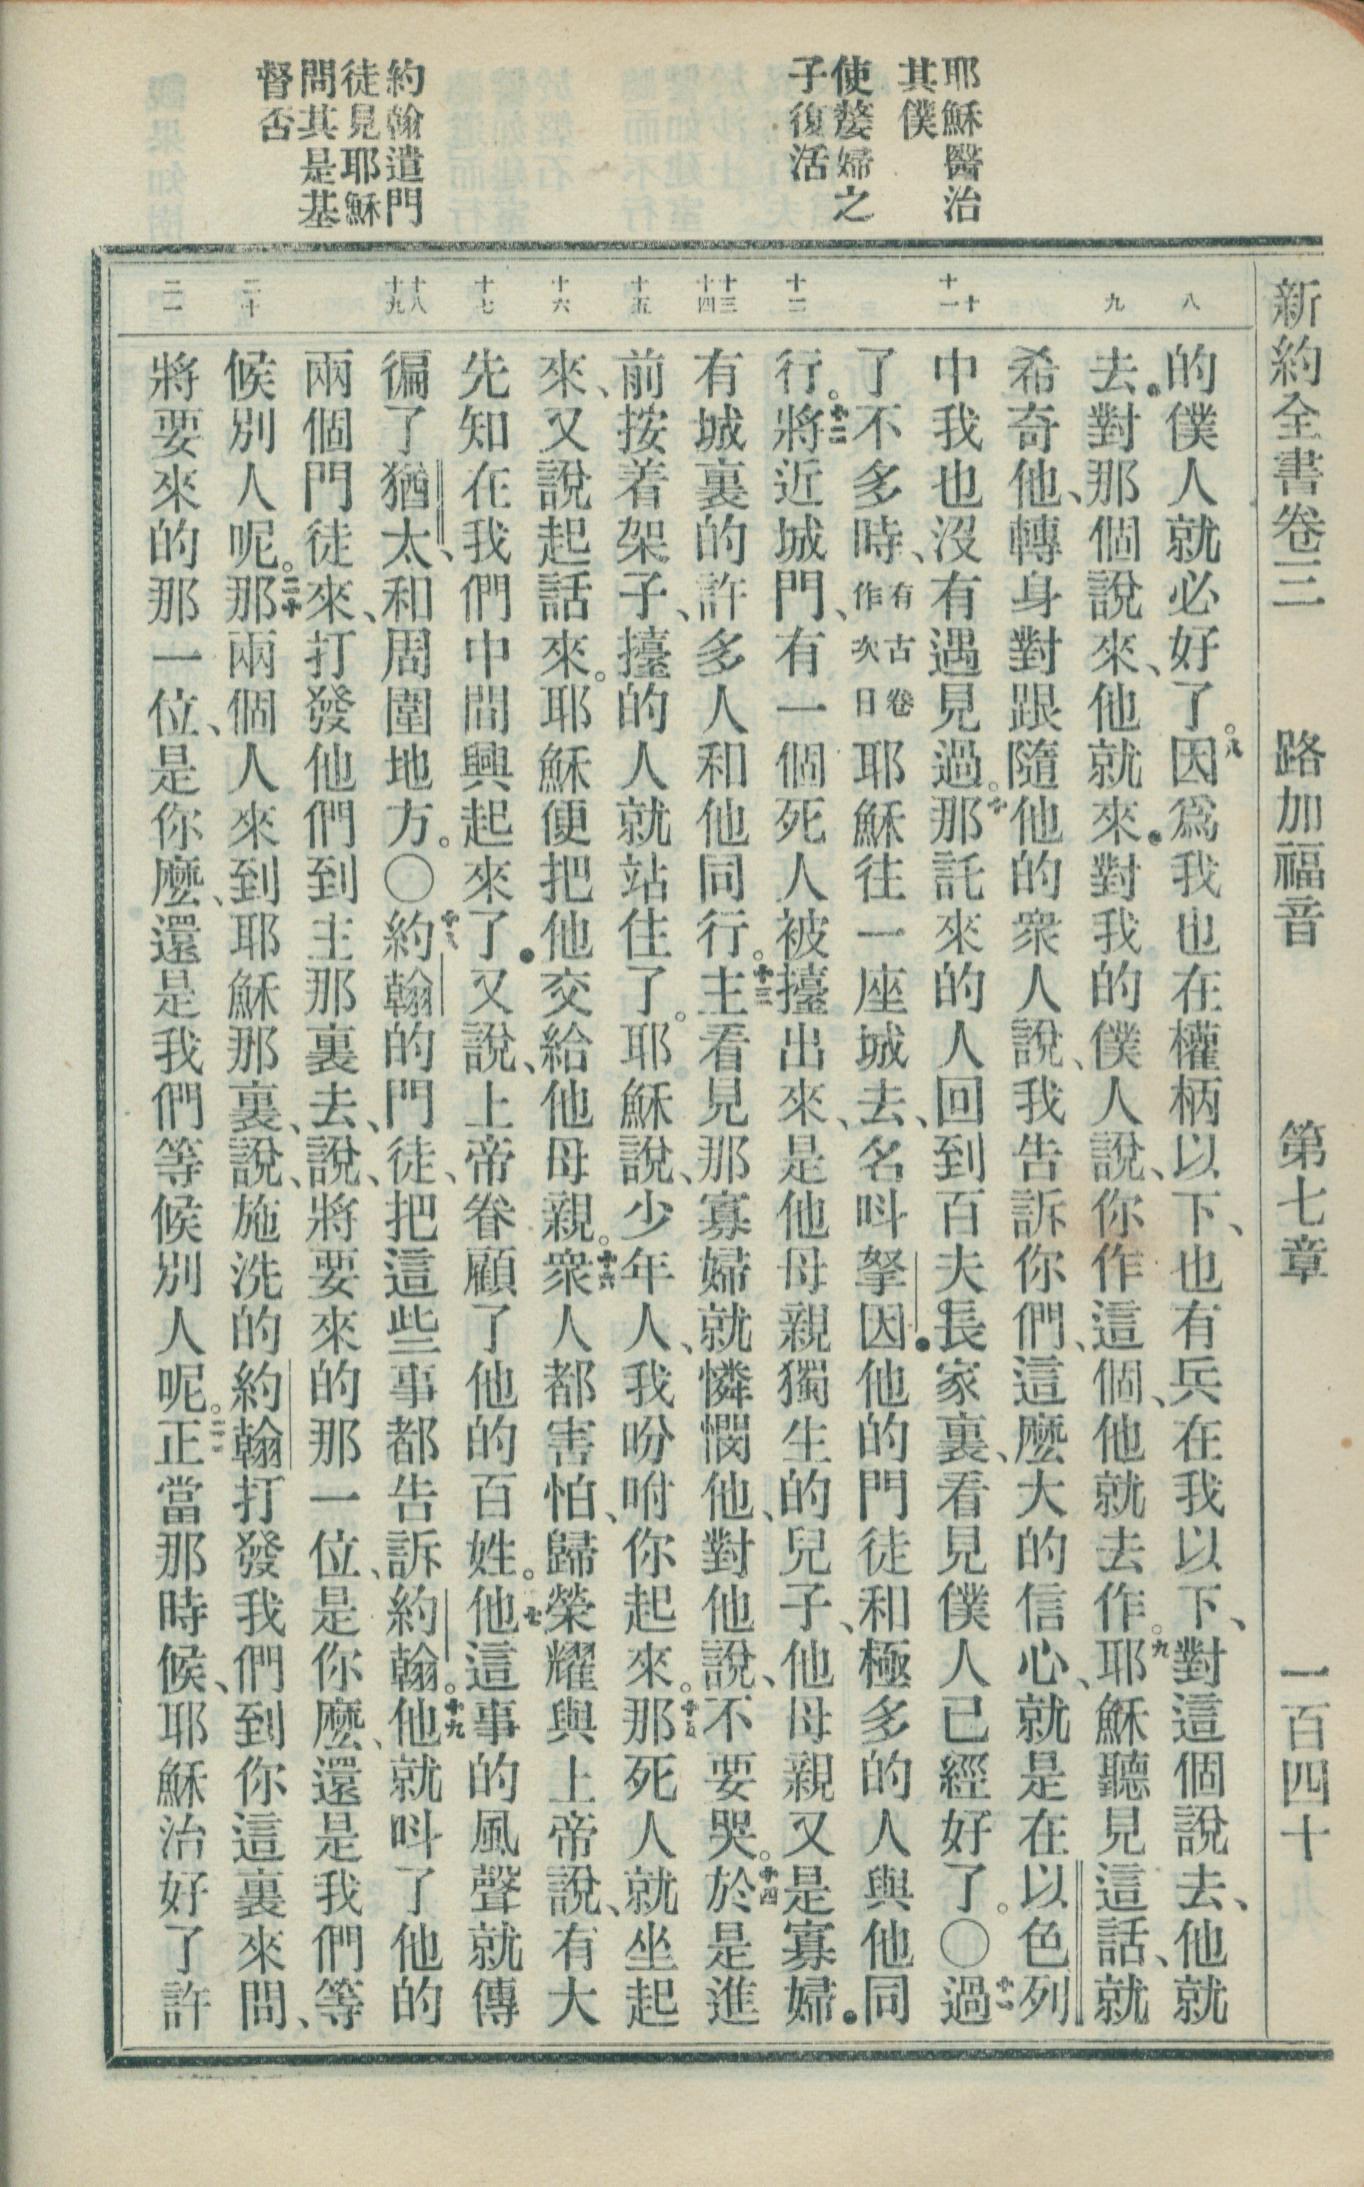 新約全書卷三 路加福音 第七章 一百四十
耶穌醫治
其僕
使嫠婦之
子復活
約翰遣門
徒見耶穌
問其是基
督否
八
九
十
十一
十二
十三
十四
十五
十六
十七
十八
十九
二十
二一
的僕人就必好了。八因爲我也在權柄以下、也有兵在我以下、對這個說去、他就
去．對那個說來、他就來．對我的僕人說、你作這個、他就去作。九耶穌聽見這話、就
希奇他、轉身對跟隨他的衆人說、我告訴你們、這麼大的信心、就是在以色列
中我也沒有遇見過。十那託來的人回到百夫長家裏、看見僕人已經好了。〇十一過
了不多時、有古卷作次日耶穌往一座城去、名呌拏因．他的門徒和極多的人與他同
行。十二將近城門、有一個死人被擡出來、是他母親獨生的兒子、他母親又是寡婦．
有城裏的許多人和他同行。十三主看見那寡婦就憐憫他、對他說、不要哭。十四於是進
前按着架子、擡的人就站住了。耶穌說、少年人、我吩咐你起來。十五那死人就坐起
來、又說起話來。耶穌便把他交給他母親。十六衆人都害怕、歸榮耀與上帝說、有大
先知在我們中間興起來了．又說、上帝眷顧了他的百姓。十七他這事的風聲就傳
徧了猶太、和周圍地方。〇十八約翰的門徒、把這些事都告訴約翰。十九他就呌了他的
兩個門徒來、打發他們到主那裏去、說、將要來的那一位、是你麼、還是我們等
候別人呢。二十那兩個人來到耶穌那裏、說、施洗的約翰打發我們到你這裏來問、
將要來的那一位、是你麼、還是我們等候別人呢。二一正當那時候、耶穌治好了許